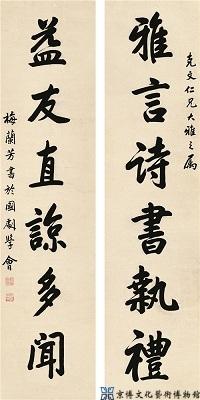 克文仁兄大雅之属
雅言诗書執禮
益友直諒多聞
梅蘭芳書於國劇學會
京博文化藝術博物館